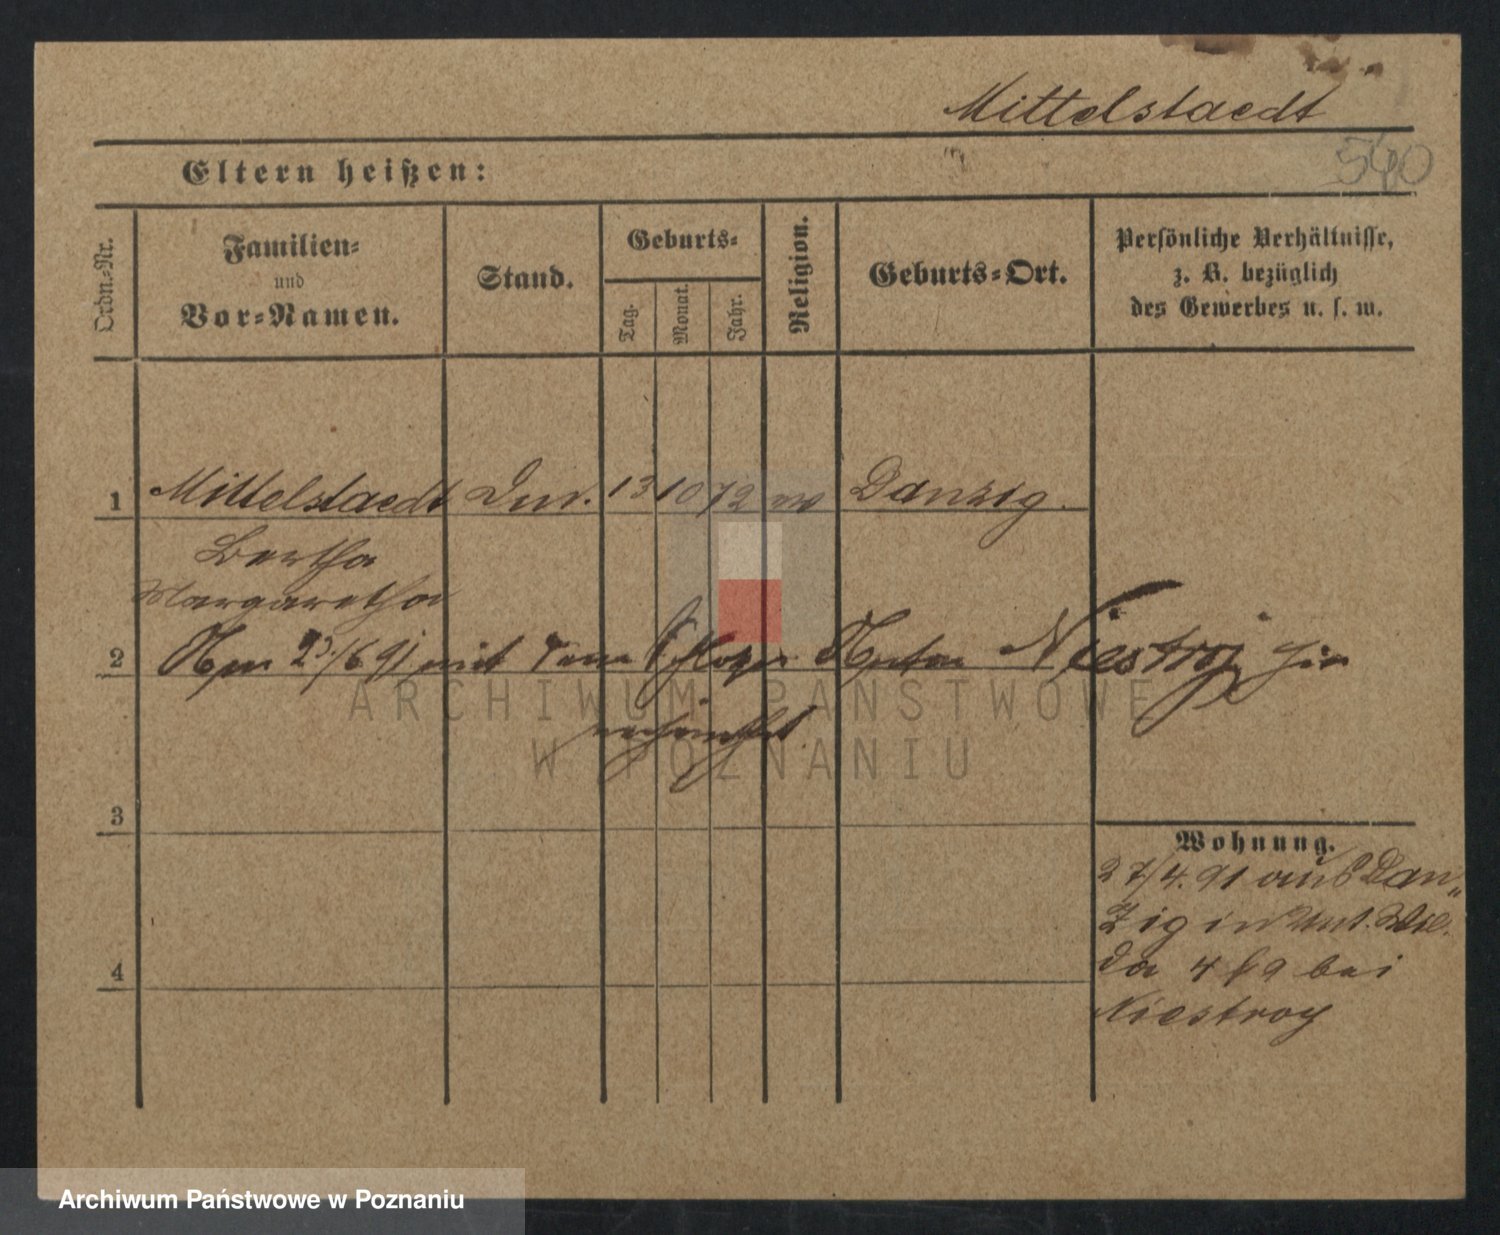 Mittelstaedt
540
Eltern heißen:
Ordn.-Nr.
Familien-
und
Vor-Namen.
Stand.
Geburts-
Tag.
Monat.
Jahr.
Religion.
Geburts-Ort.
Persönliche Verhältnisse,
z. B. bezüglich
des Gewerbes u. s. w.
1 Mittelstaedt 13 10 72 Danzig.
Bertha
Margaretha
2 Am 23/6 91 mit dem Anton Niestroj hier
verheirathet.
3
Wohnung.
27/4. 91 aus Dan„
zig in Unt. Wil.
da 4 bei
Niestroy
4
ARCHIWUM PAŃSTWOWE
W POZNANIU
Archiwum Państwowe w Poznaniu